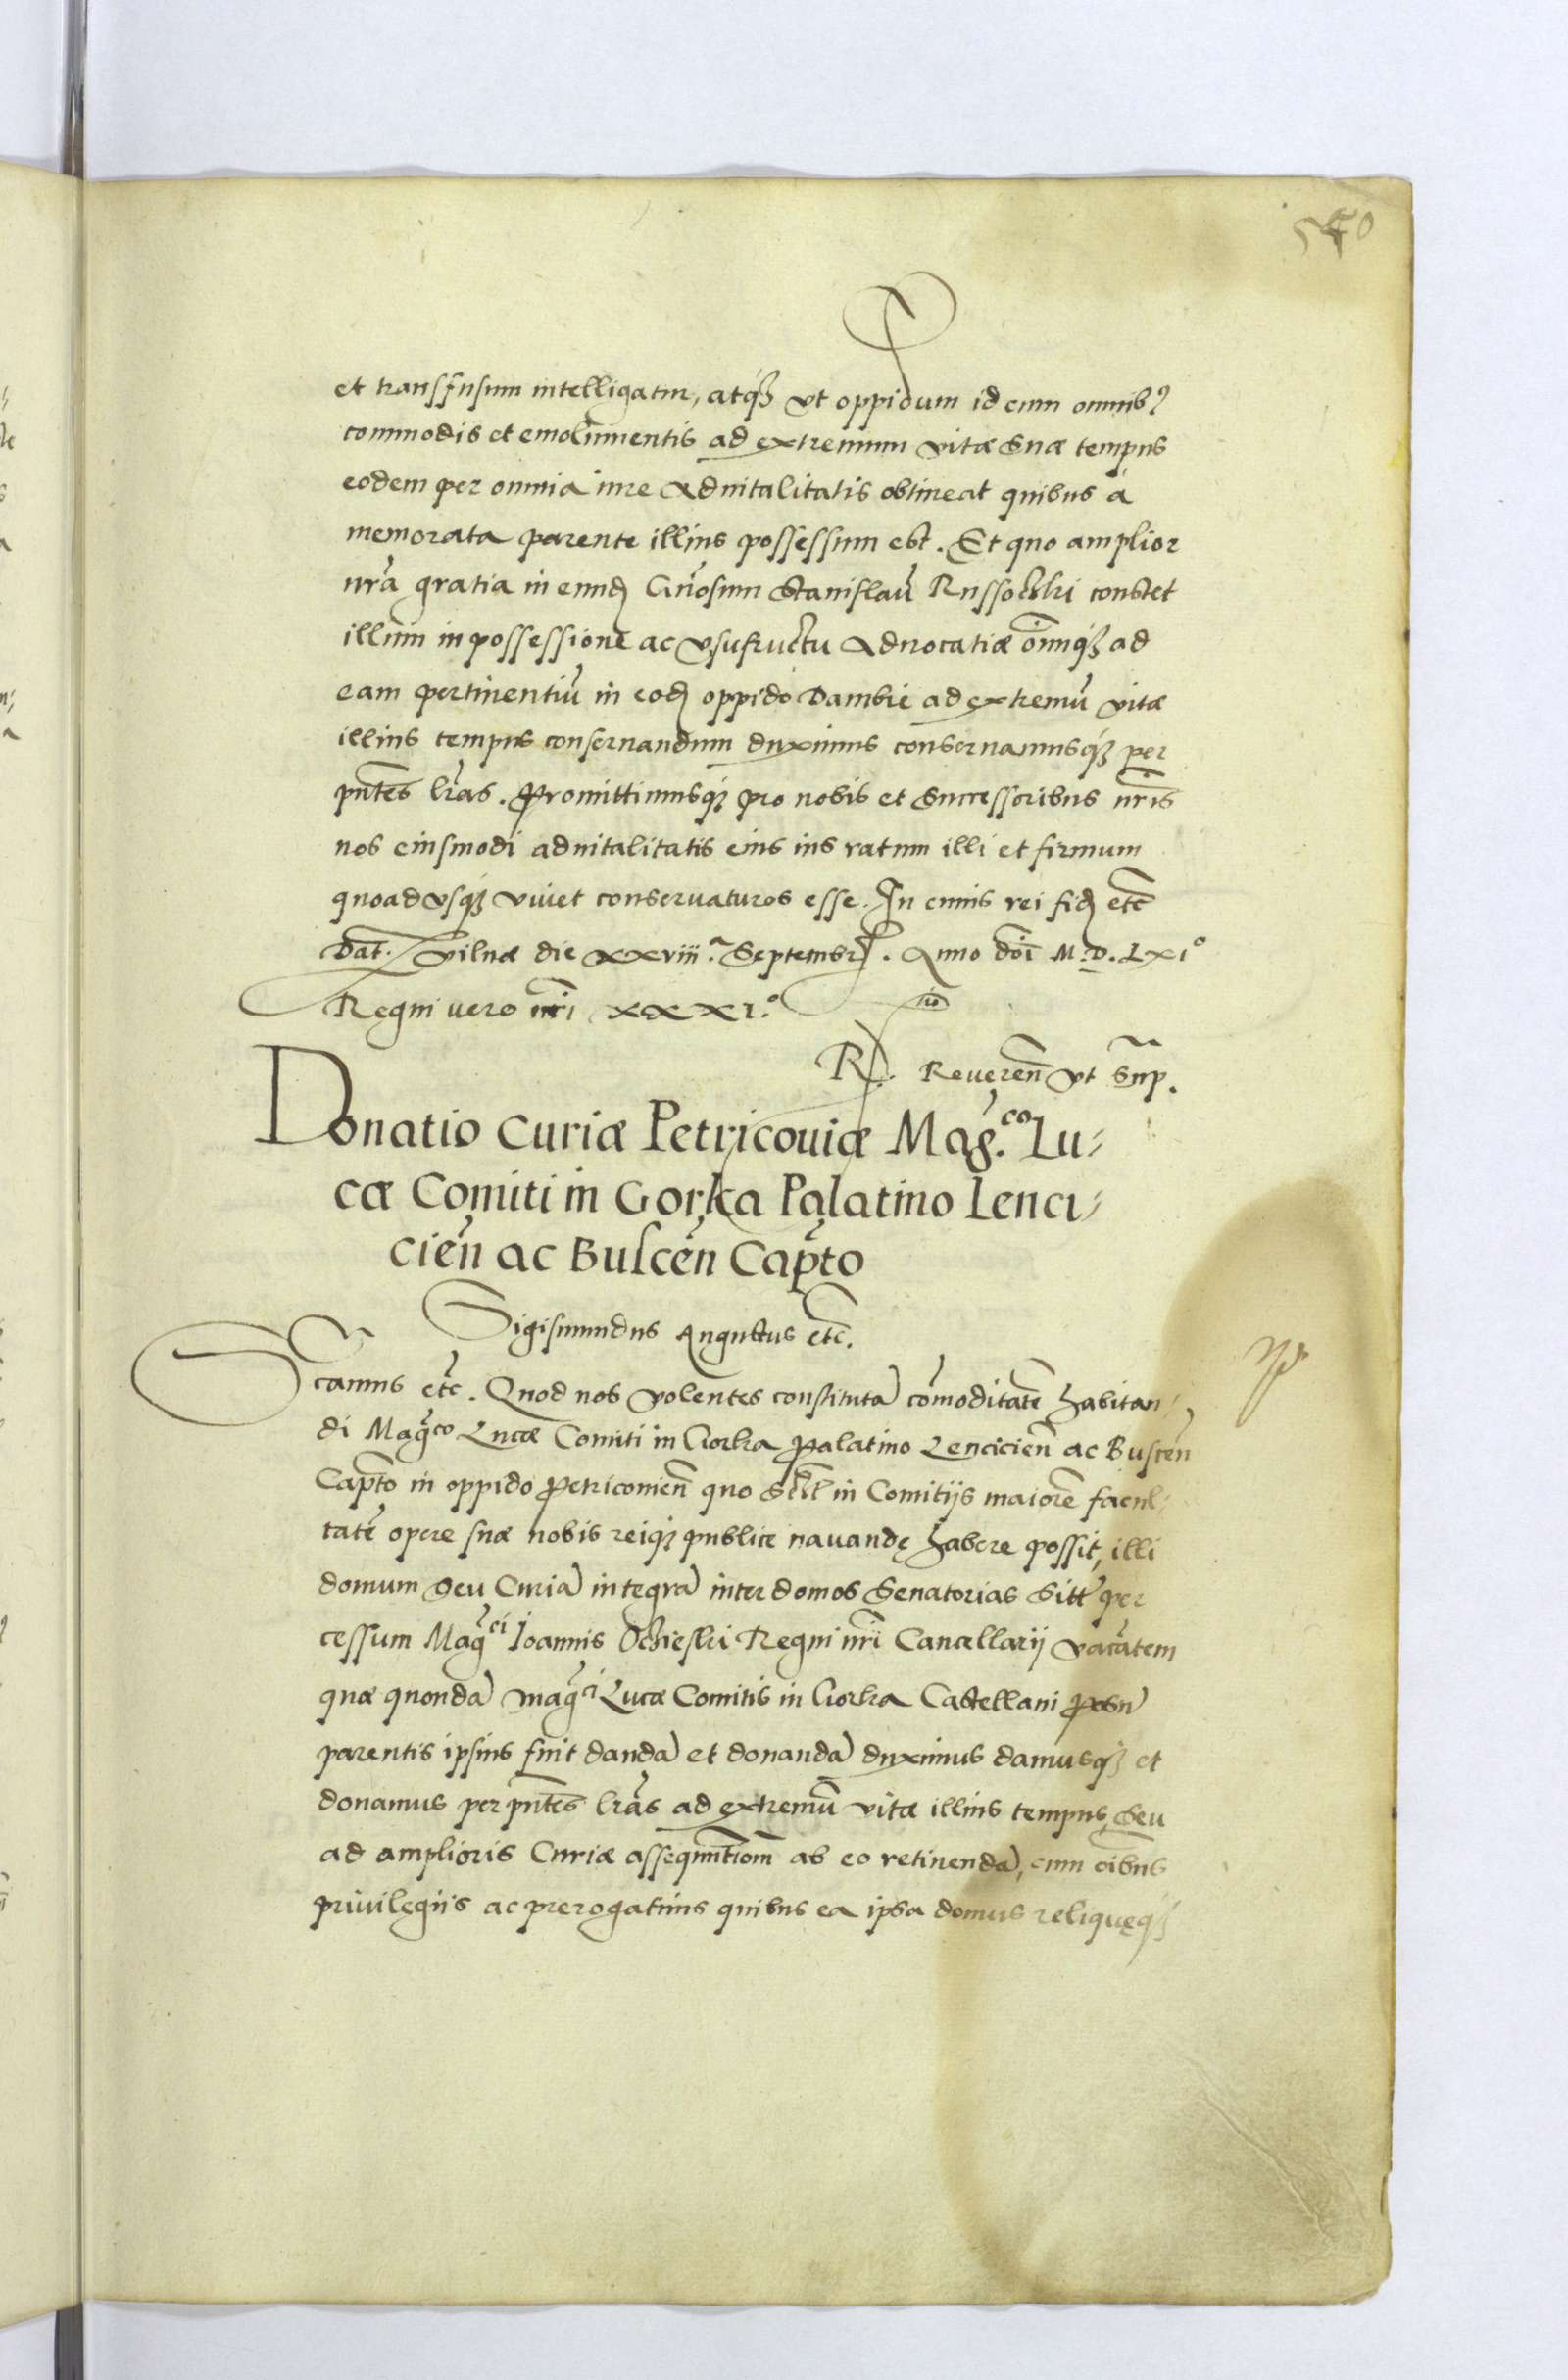 et transfusum intelligatur, atq́ꝫ vt oppidum id cum omnibꝰ
commodis et emolumentis ad extremum vitæ suæ tempus
eodem per omnia iure aduitalitatis obtineat quibus à
memorata parente illius possessum est. Et quo amplior
nr̃a gratia in eund̨ Gñosum Stanislaũ Russoczki constet
illum in possessione ac vsufructu Aduocatiæ om̃iuq́ꝫ ad
eam pertinentiũ in eod̨ oppido Dambie ad extremũ vitæ
illius tempus conseruandum duximus conseruamusq́ꝫ per
pñtes lr̃as. Promittimusq́ꝫ pro nobis et Successoribus nr̃is
nos eiusmodi aduitalitatis eius ius ratum illi et firmum
quoad vsq́ꝫ viuet conservaturos esse. In cuius rei fid̨ etc̃
Dat̃. Vilnæ die xxviii.ª Septembr̨. Anno dõi M.D.Lxiº
Regni uero nr̃i xxxi.º
R. Reueren̄ vt Sup̃.
Donatio Curiæ Petricouiæ Mag̃.co Lu⸗
cæ Comiti in Gorka Palatino Lenci⸗
cień ac Buscen̄ Cap̃to
Sigismundus Augustus etc̃.
S camus etc̃. Quod nos volentes constitutã com̃oditatẽ habitan⸗
di Mag̃co Lucæ Comiti in Gorka Palatino Lencicien̄ ac Buscen̄
Cap̃to in oppido Petricouien̄ quo sc̃il in Comitijs maiorẽ facul⸗
tatẽ opere suæ nobis reiq́ꝫ publice nauandę habere possit, illi
domum seu Curiã integrã inter domos Senatorias Sitã per
cessum Mag̃ci Joannis Oczieski Regni nr̃i Cancellarij vacãtem
quæ quondã mag̃ci Lucæ Comitis in Gorka Castellani Posn̄
parentis ipsius fuit dandã et donandã duximus damusq́ꝫ et
donamus per pñtes lr̃as ad extremũ vitæ illius tempus, Seu
ad amplioris Curiæ assequut̃iom̃ ab eo retinendã, cum õibus
priuilegiis ac prerogatiuis quibus ea ipsa domus reliquęq́ꝫ